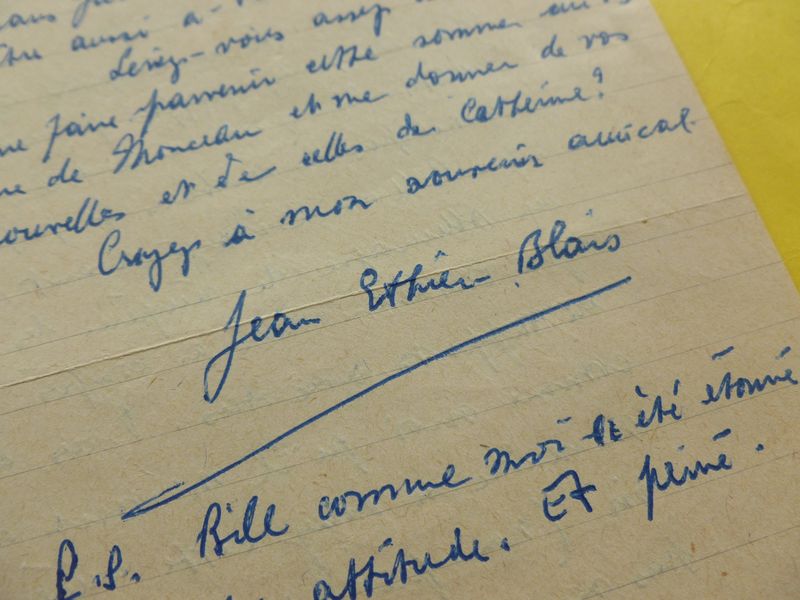 être aussi à
Seriez-vous assez
me faire parvenir cette somme
de Monceau et me donner de vos
nouvelles et de celles de Catherine?
Croyez à mon souvenir amical.
Jean Ethier-Blais
P.S. Bill comme moi a été étonné
attitude. Et peiné.